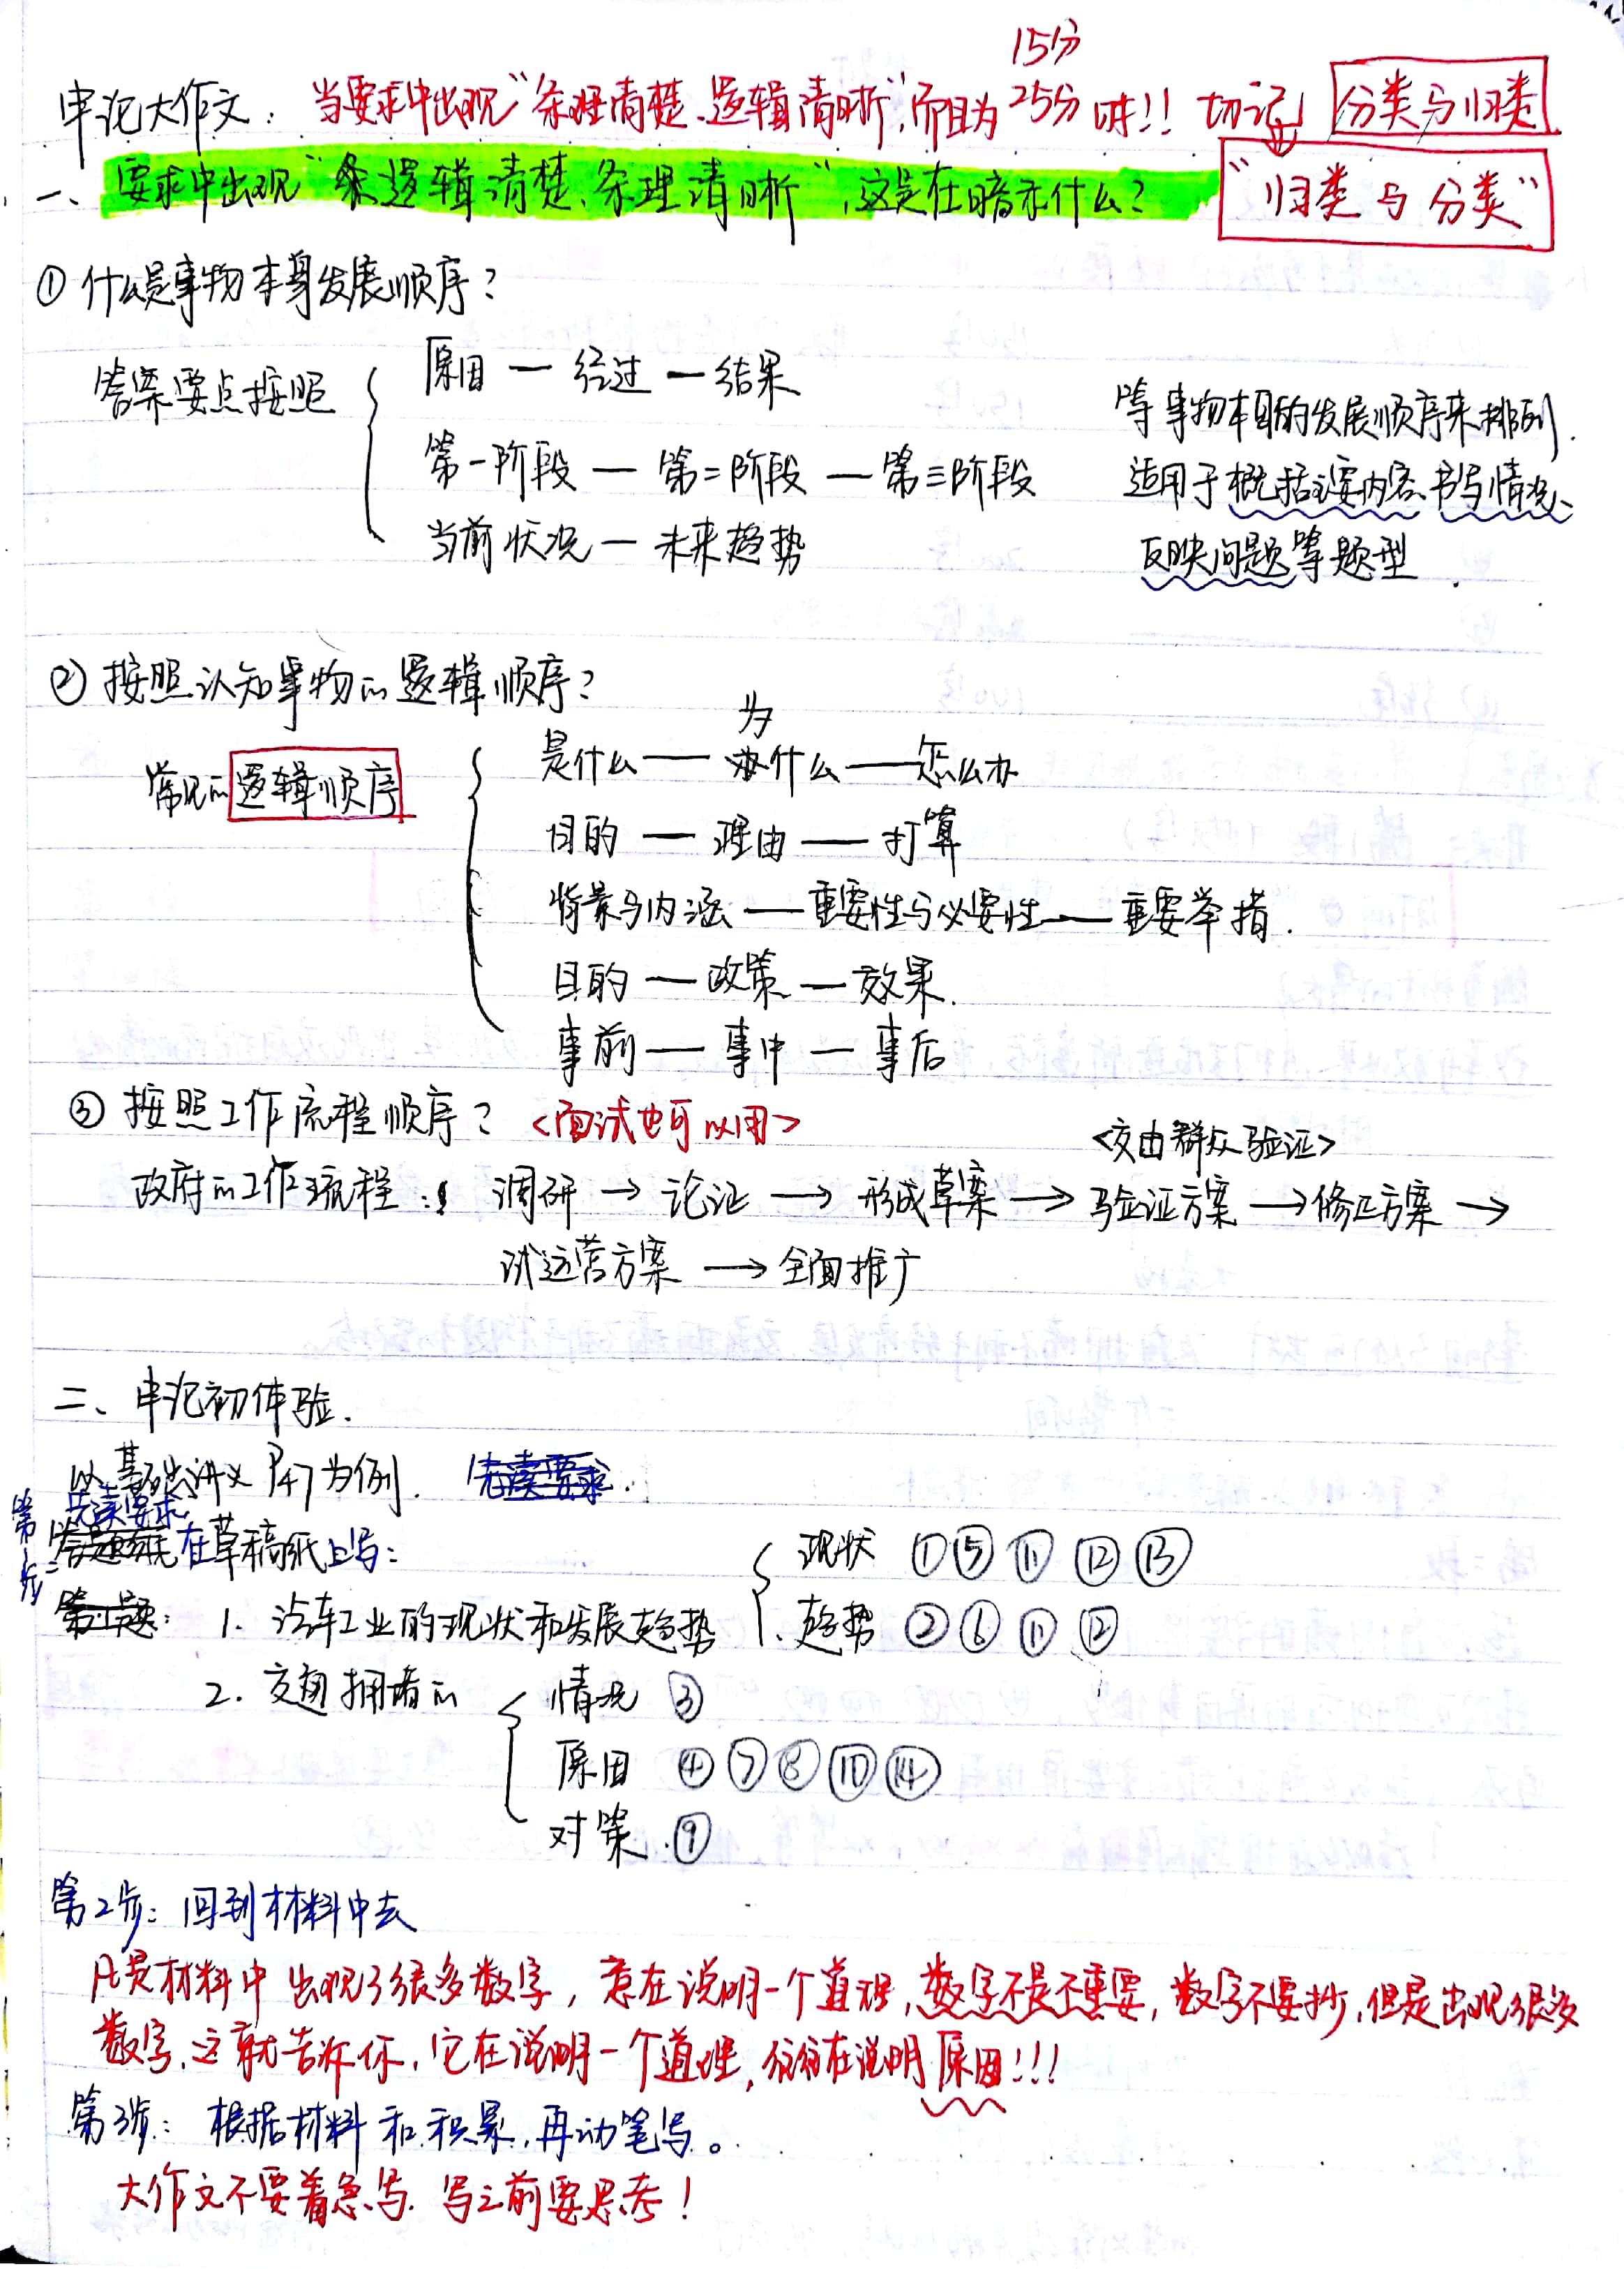 15分
申论大作文：当要求中出现“条理清楚、逻辑清晰”，而且为25分时!! 切记 分类与归类
一、要求中出现“逻辑清楚、条理清晰”，这是在暗示什么？ “归类与分类”
① 什么是事物本身发展顺序？
答案要点按照 原因 — 经过 — 结果
第一阶段 — 第二阶段 — 第三阶段
当前状况 — 未来趋势
等事物本身的发展顺序来排列.
适用于概括主要内容、书写情况、
反映问题等题型
② 按照认知事物的逻辑顺序？
常见的逻辑顺序 是什么 — 为什么 — 怎么办
目的 — 理由 — 打算
背景与内涵 — 重要性与必要性 — 重要举措.
目的 — 政策 — 效果.
事前 — 事中 — 事后
③ 按照工作流程顺序？ <面试也可以用>
<交由群众验证>
政府的工作流程： 调研 → 论证 → 形成草案 → 验证方案 → 修正方案 →
试运营方案 → 全面推广
二、申论初体验.
以基础讲义P47为例.
第一步：先读要求 在草稿纸上写：
1. 汽车工业的现状和发展趋势 现状 ① ⑤ ⑪ ⑫ ⑬
趋势 ② ⑥ ⑪ ⑫
2. 交通拥堵的 情况 ③
原因 ④ ⑦ ⑧ ⑩ ⑭
对策. ⑨
第2步：回到材料中去
凡是材料中出现了很多数字，意在说明一个道理，数字不是不重要，数字不要抄，但是出现很多
数字，这就告诉你，它在说明一个道理，往往在说明原因!!!
第3步：根据材料和积累，再动笔写。
大作文不要着急写. 写之前要思考！